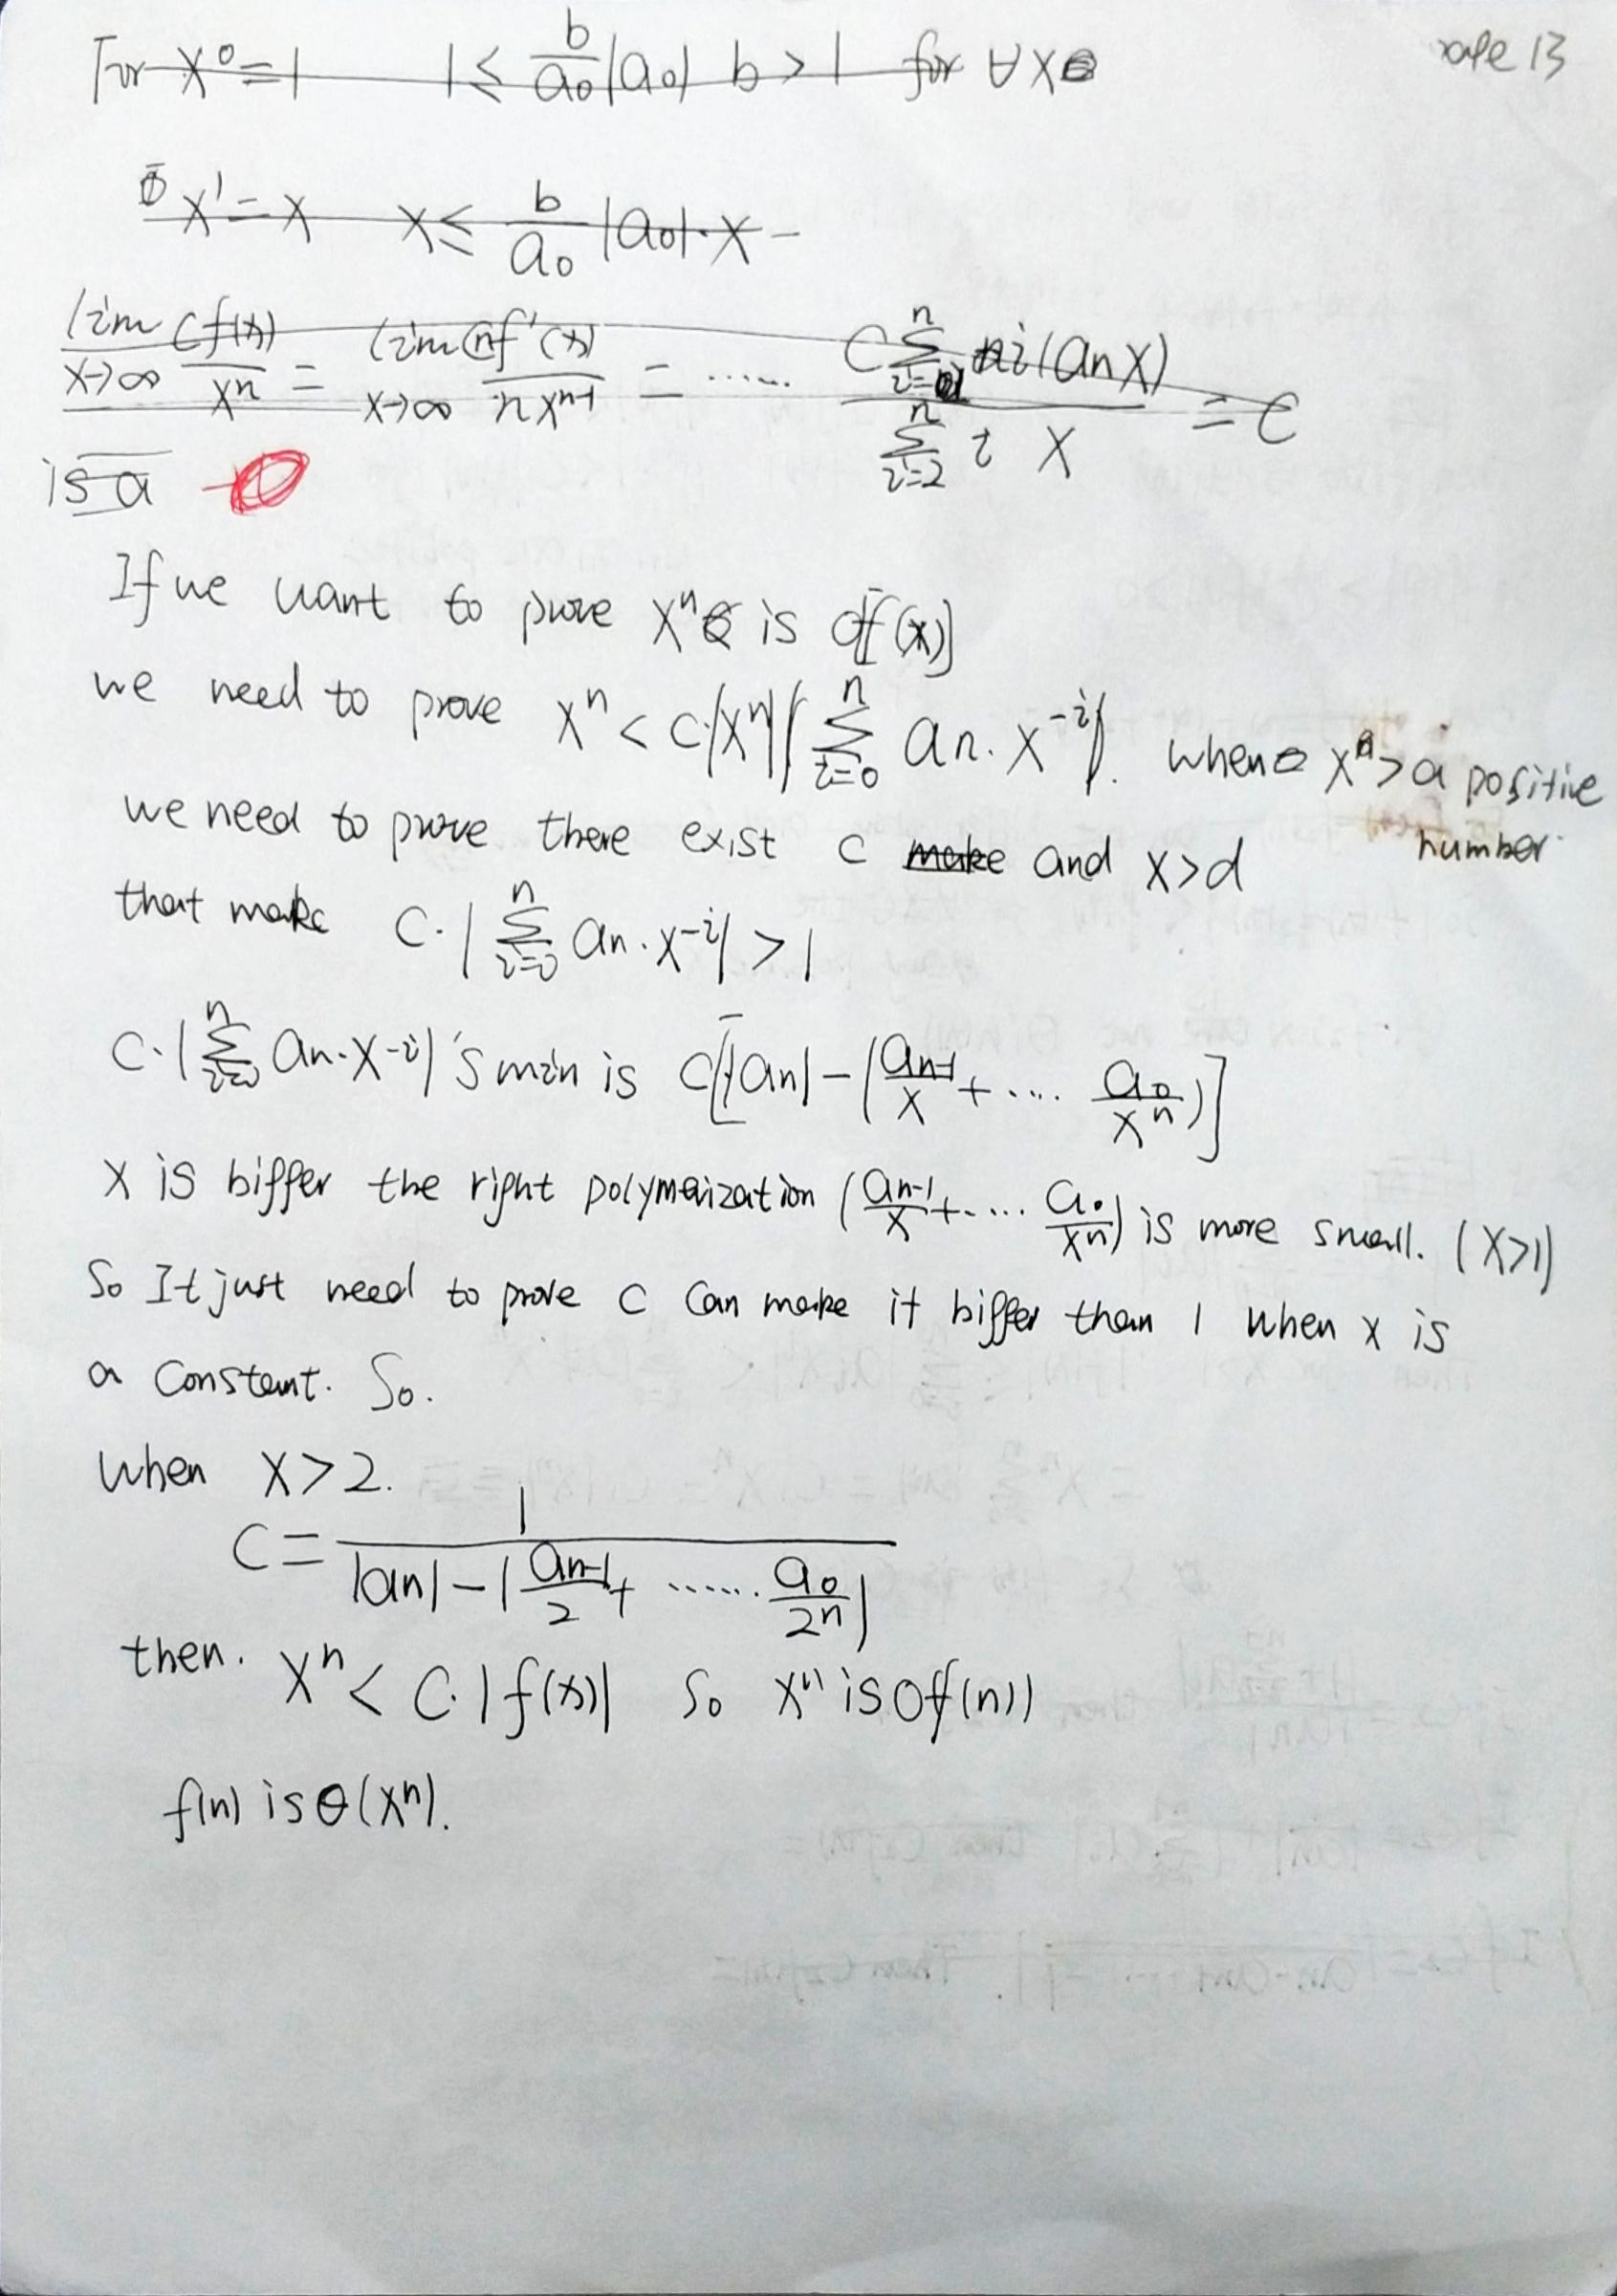 For x⁰=1 1 ≤ b/a₀ |a₀| b > 1 for ∀x
13
① x¹=x x ≤ b/a₀ |a₀|·x −
lim x→∞ Cf(x)/xⁿ = lim x→∞ f'(x)/n xⁿ⁻¹ = ...... C Σ i(an x) / Σ i x = C
is a
If we want to prove xⁿ is of(x)]
we need to prove xⁿ < C·|xⁿ|| Σ_{i=0}^{n} an·x⁻ⁱ|. when xⁿ > a positive
number.
we need to prove there exist C make and x>d
that make C·| Σ_{i=0}^{n} an·x⁻ⁱ| > 1
C·| Σ_{i=0}^{n} an·x⁻ⁱ| 's min is C[|an| − (an-1/x + .... a₀/xⁿ)]
x is biffer the right polymerization (an-1/x + .... a₀/xⁿ) is more small. (x>1)
So It just need to prove C Can make it biffer than 1 when x is
a constant. So.
when x>2.
C = 1 / |an| − |an-1/2 + ...... a₀/2ⁿ|
then. xⁿ < C·|f(x)| So xⁿ is Of(n))
f(n) is θ(xⁿ).